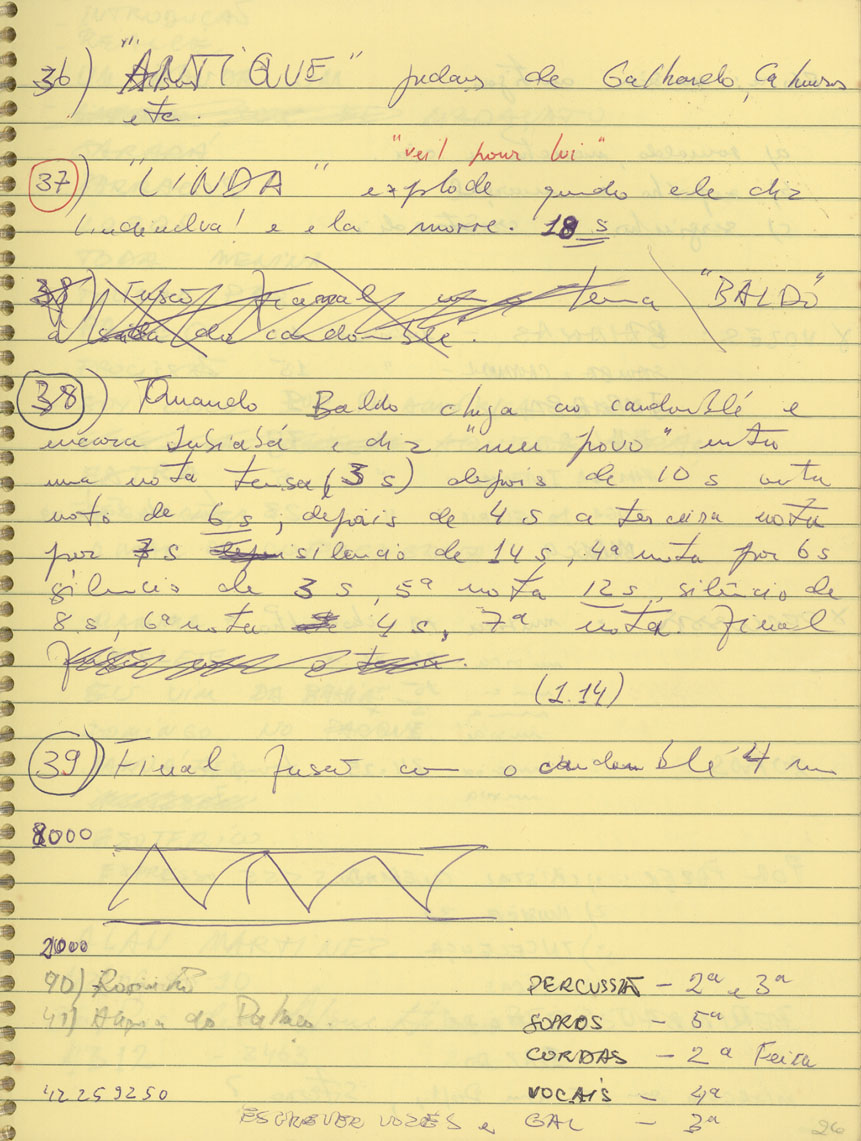 36) "ANTIQUE" pedais de Galhardo,
etc.
"veil pour lui"
37) "LINDA" explode quando ele diz
Lindinalva! e ela morre. 18 s
38) Fusão Final com tema "BALDO"
candomblé.
38) Quando Baldo chega ao candomblé e
encara Jubiabá e diz "meu povo" entra
uma nota tensa (3 s) depois de 10 s outra
nota de 6 s, depois de 4 s a terceira nota
por 7 s silencio de 14 s, 4ª nota por 6 s
silencio de 3 s, 5ª nota 12 s, silêncio de
8 s, 6ª nota 4 s, 7ª nota. Final
(1.14)
39) Final fusão com o candomblé 4 m
8000
2000
40)
PERCUSSÃO - 2ª e 3ª
41)
SOPROS - 5ª
CORDAS - 2ª Feira
42259250
VOCAIS - 4ª
ESCREVER VOZES e GAL - 3ª
26